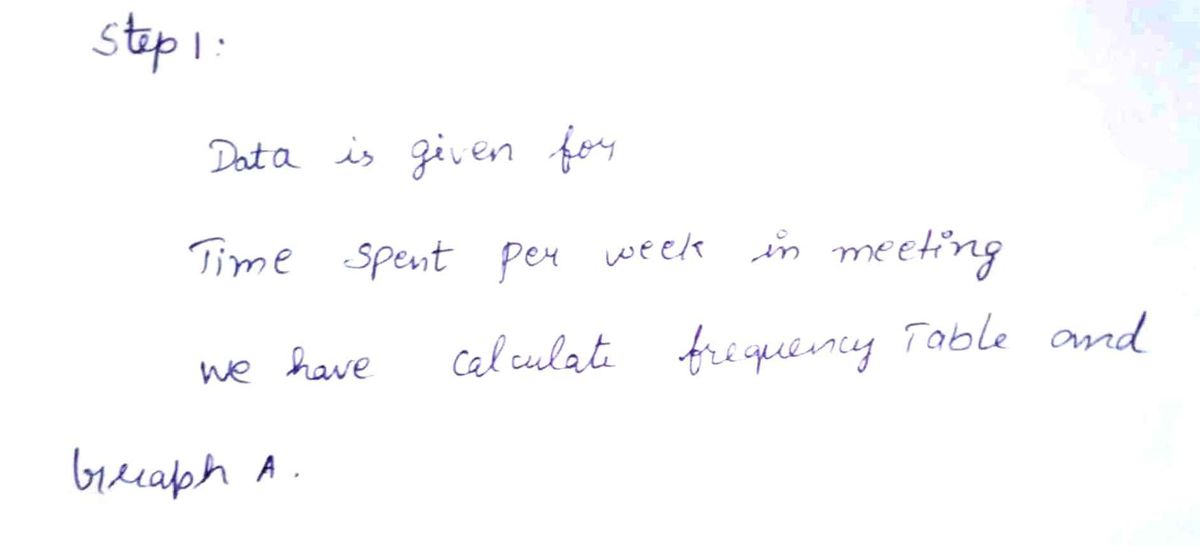 Step 1:
Data is given for
Time spent per week in meeting
we have calculate frequency Table and
Graph A.